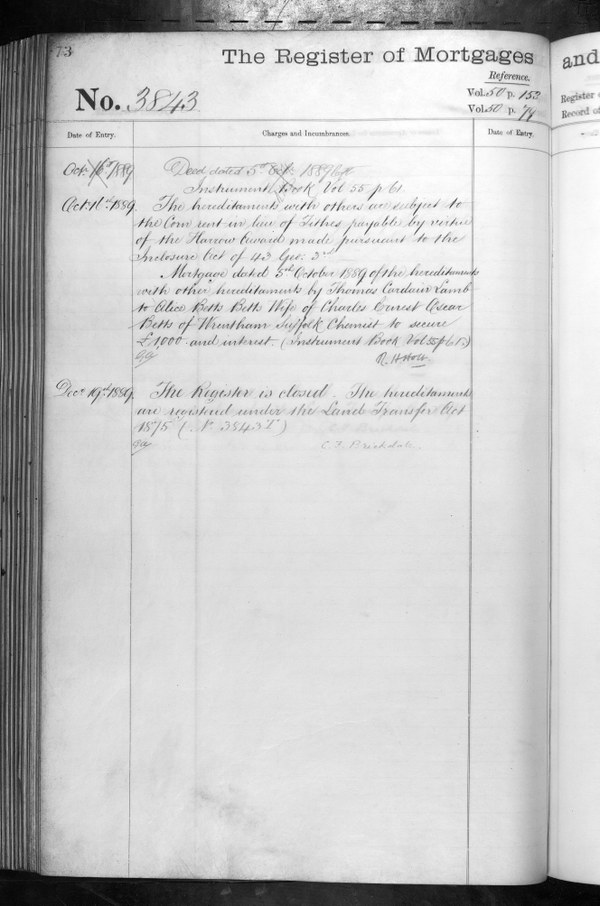 73
The Register of Mortgages
and
Reference.
No. 3843.
Vol. 50 p. 152
Vol. 50 p. 74
Register
Record of
Date of Entry.
Charges and Incumbrances.
Date of Entry.
Oct. 16th 1889
Deed dated 5th Oct. 1889
Instrument Book Vol 55 p 61.
Oct. 16th 1889.
The hereditaments with others are subject to
the Corn rent in lieu of Tithes payable by virtue
of the Harrow Award made pursuant to the
Inclosure Act of 43 Geo: 3rd
Mortgage dated 5th October 1889 of the hereditaments
with other hereditaments by Thomas Cardain Lamb
to Alice Betts Betts Wife of Charles Ernest Oscar
Betts of Wrentham Suffolk Chemist to secure
£1000 and interest. (Instrument Book Vol 55 p 61.)
R. H. Holt
Decr. 19th 1889.
The Register is closed. The hereditaments
are registered under the Land Transfer Act
1875 (. No. 3843 )
C. F. Brickdale